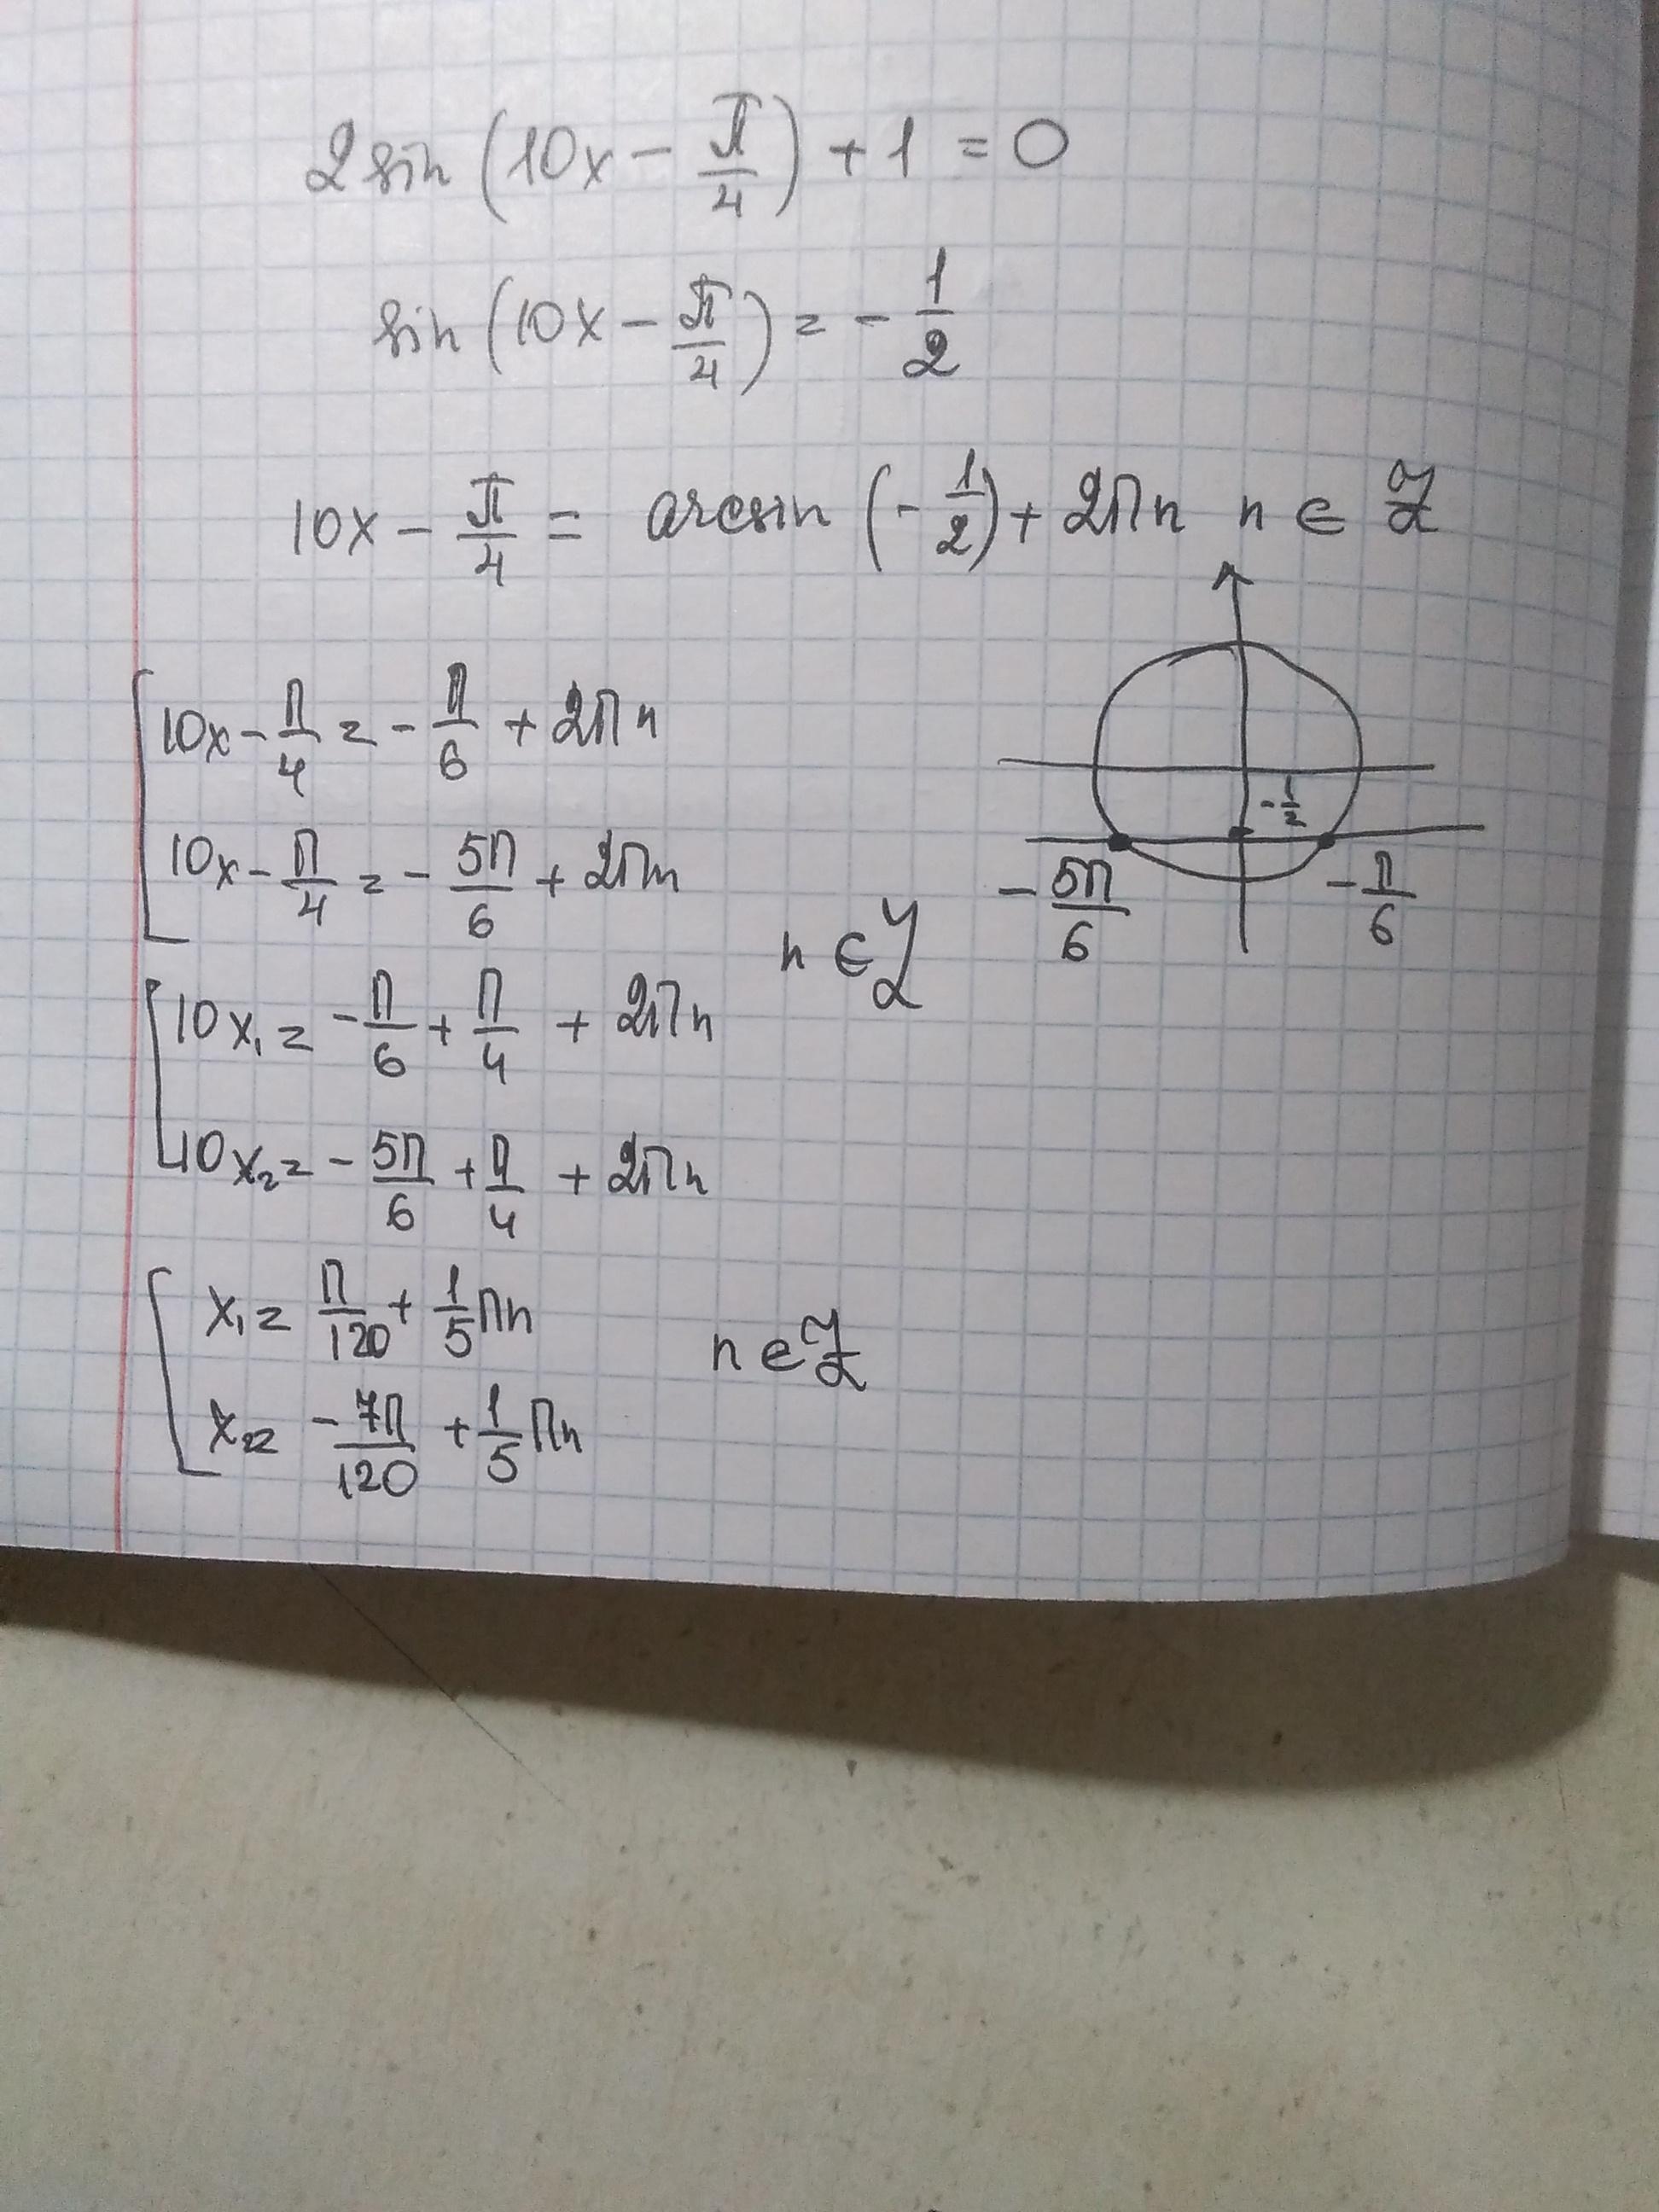 2 sin (10x - π/4) + 1 = 0
sin (10x - π/4) = - 1/2
10x - π/4 = arcsin (- 1/2) + 2πn n ∈ Z
10x - π/4 = - π/6 + 2πn
- 1/2
10x - π/4 = - 5π/6 + 2πn
- 5π/6
- π/6
n ∈ Z
10x₁ = - π/6 + π/4 + 2πn
10x₂ = - 5π/6 + π/4 + 2πn
x₁ = π/120 + 1/5 πn
n ∈ Z
x₂ = - 7π/120 + 1/5 πn